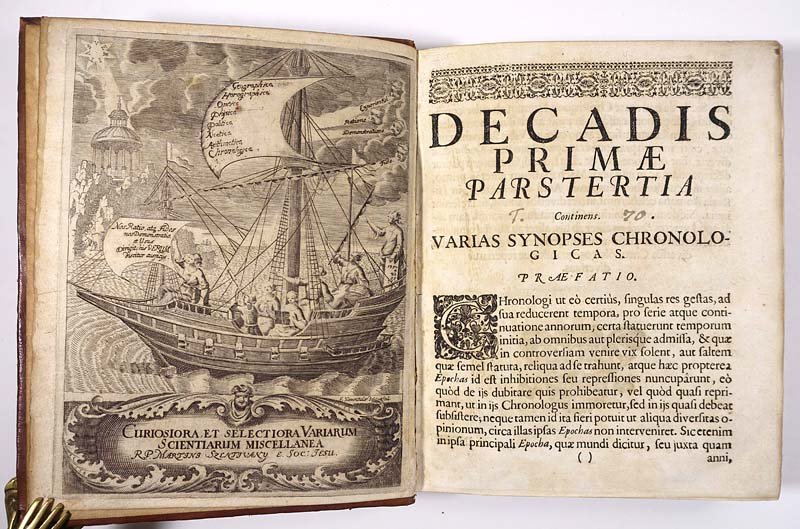 Geographica
Horographica
Optica
Physica
Politica
Arithmetica
Chronologica
Experientia
Ratione
Demonstratione
Nos Ratio, atq́, Fides
nos Demonstratio
et Usus
Dirigit: his
CURIOSIORA ET SELECTIORA VARIARUM
SCIENTIARUM MISCELLANEA
R.P. MARTINI SZENTIVANY E. SOC: IESU.
DECADIS
PRIMÆ
PARS TERTIA
T. Continens. 70.
VARIAS SYNOPSES CHRONOLO-
GICAS.
PRÆFATIO.
CHronologi ut eò certiùs, singulas res gestas, ad
sua reducerent tempora, pro serie atque conti-
nuatione annorum, certa statuerunt temporum
initia, ab omnibus aut plerisque admissa, & quæ
in controversiam venire vix solent, aut saltem
quæ semel statuta, reliqua ad se trahunt, atque hæc propterea
Epochas id est inhibitiones seu repressiones nuncupârunt, eò
quòd de ijs dubitare quis prohibeatur, vel quòd quasi repri-
mant, ut in ijs Chronologus immoretur, sed in ijs quasi debeat
subsistere, neque tamen id ita fieri potuit ut aliqua diversitas o-
pinionum, circa illas ipsas Epochas non interveniret. Sic etenim
in ipsa principali Epocha, quæ mundi dicitur, seu juxta quam
( ) anni,